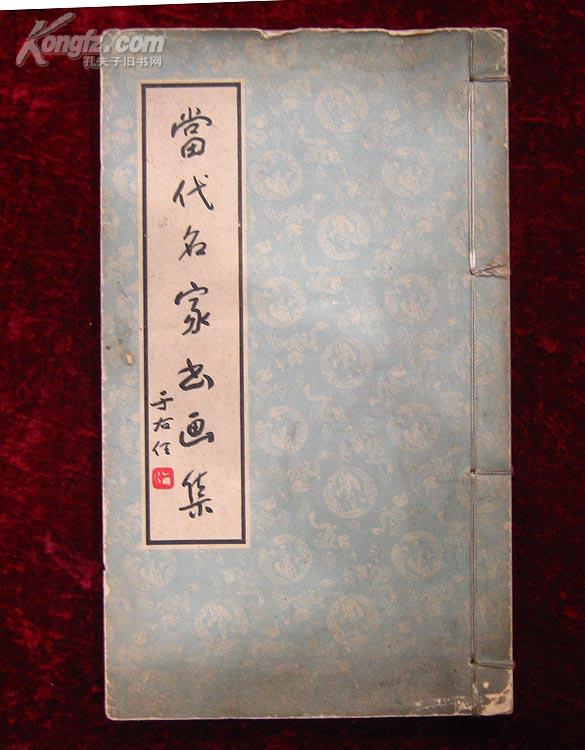 Kongfz.com
孔夫子旧书网
當代名家书画集
于右任